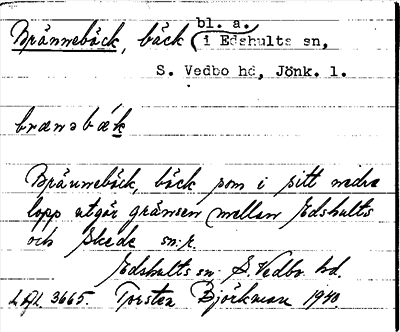 bl. a.
Brännebäck, bäck (i Edshults sn,
S. Vedbo hd, Jönk. l.
brænəbæ´k
Brännebäck, bäck som i sitt nedre
lopp utgör gränsen mellan Edshults
och Skede sn:r.
Edshults sn. S. Vedbo hd.
3665. Torsten Björkman 1940.